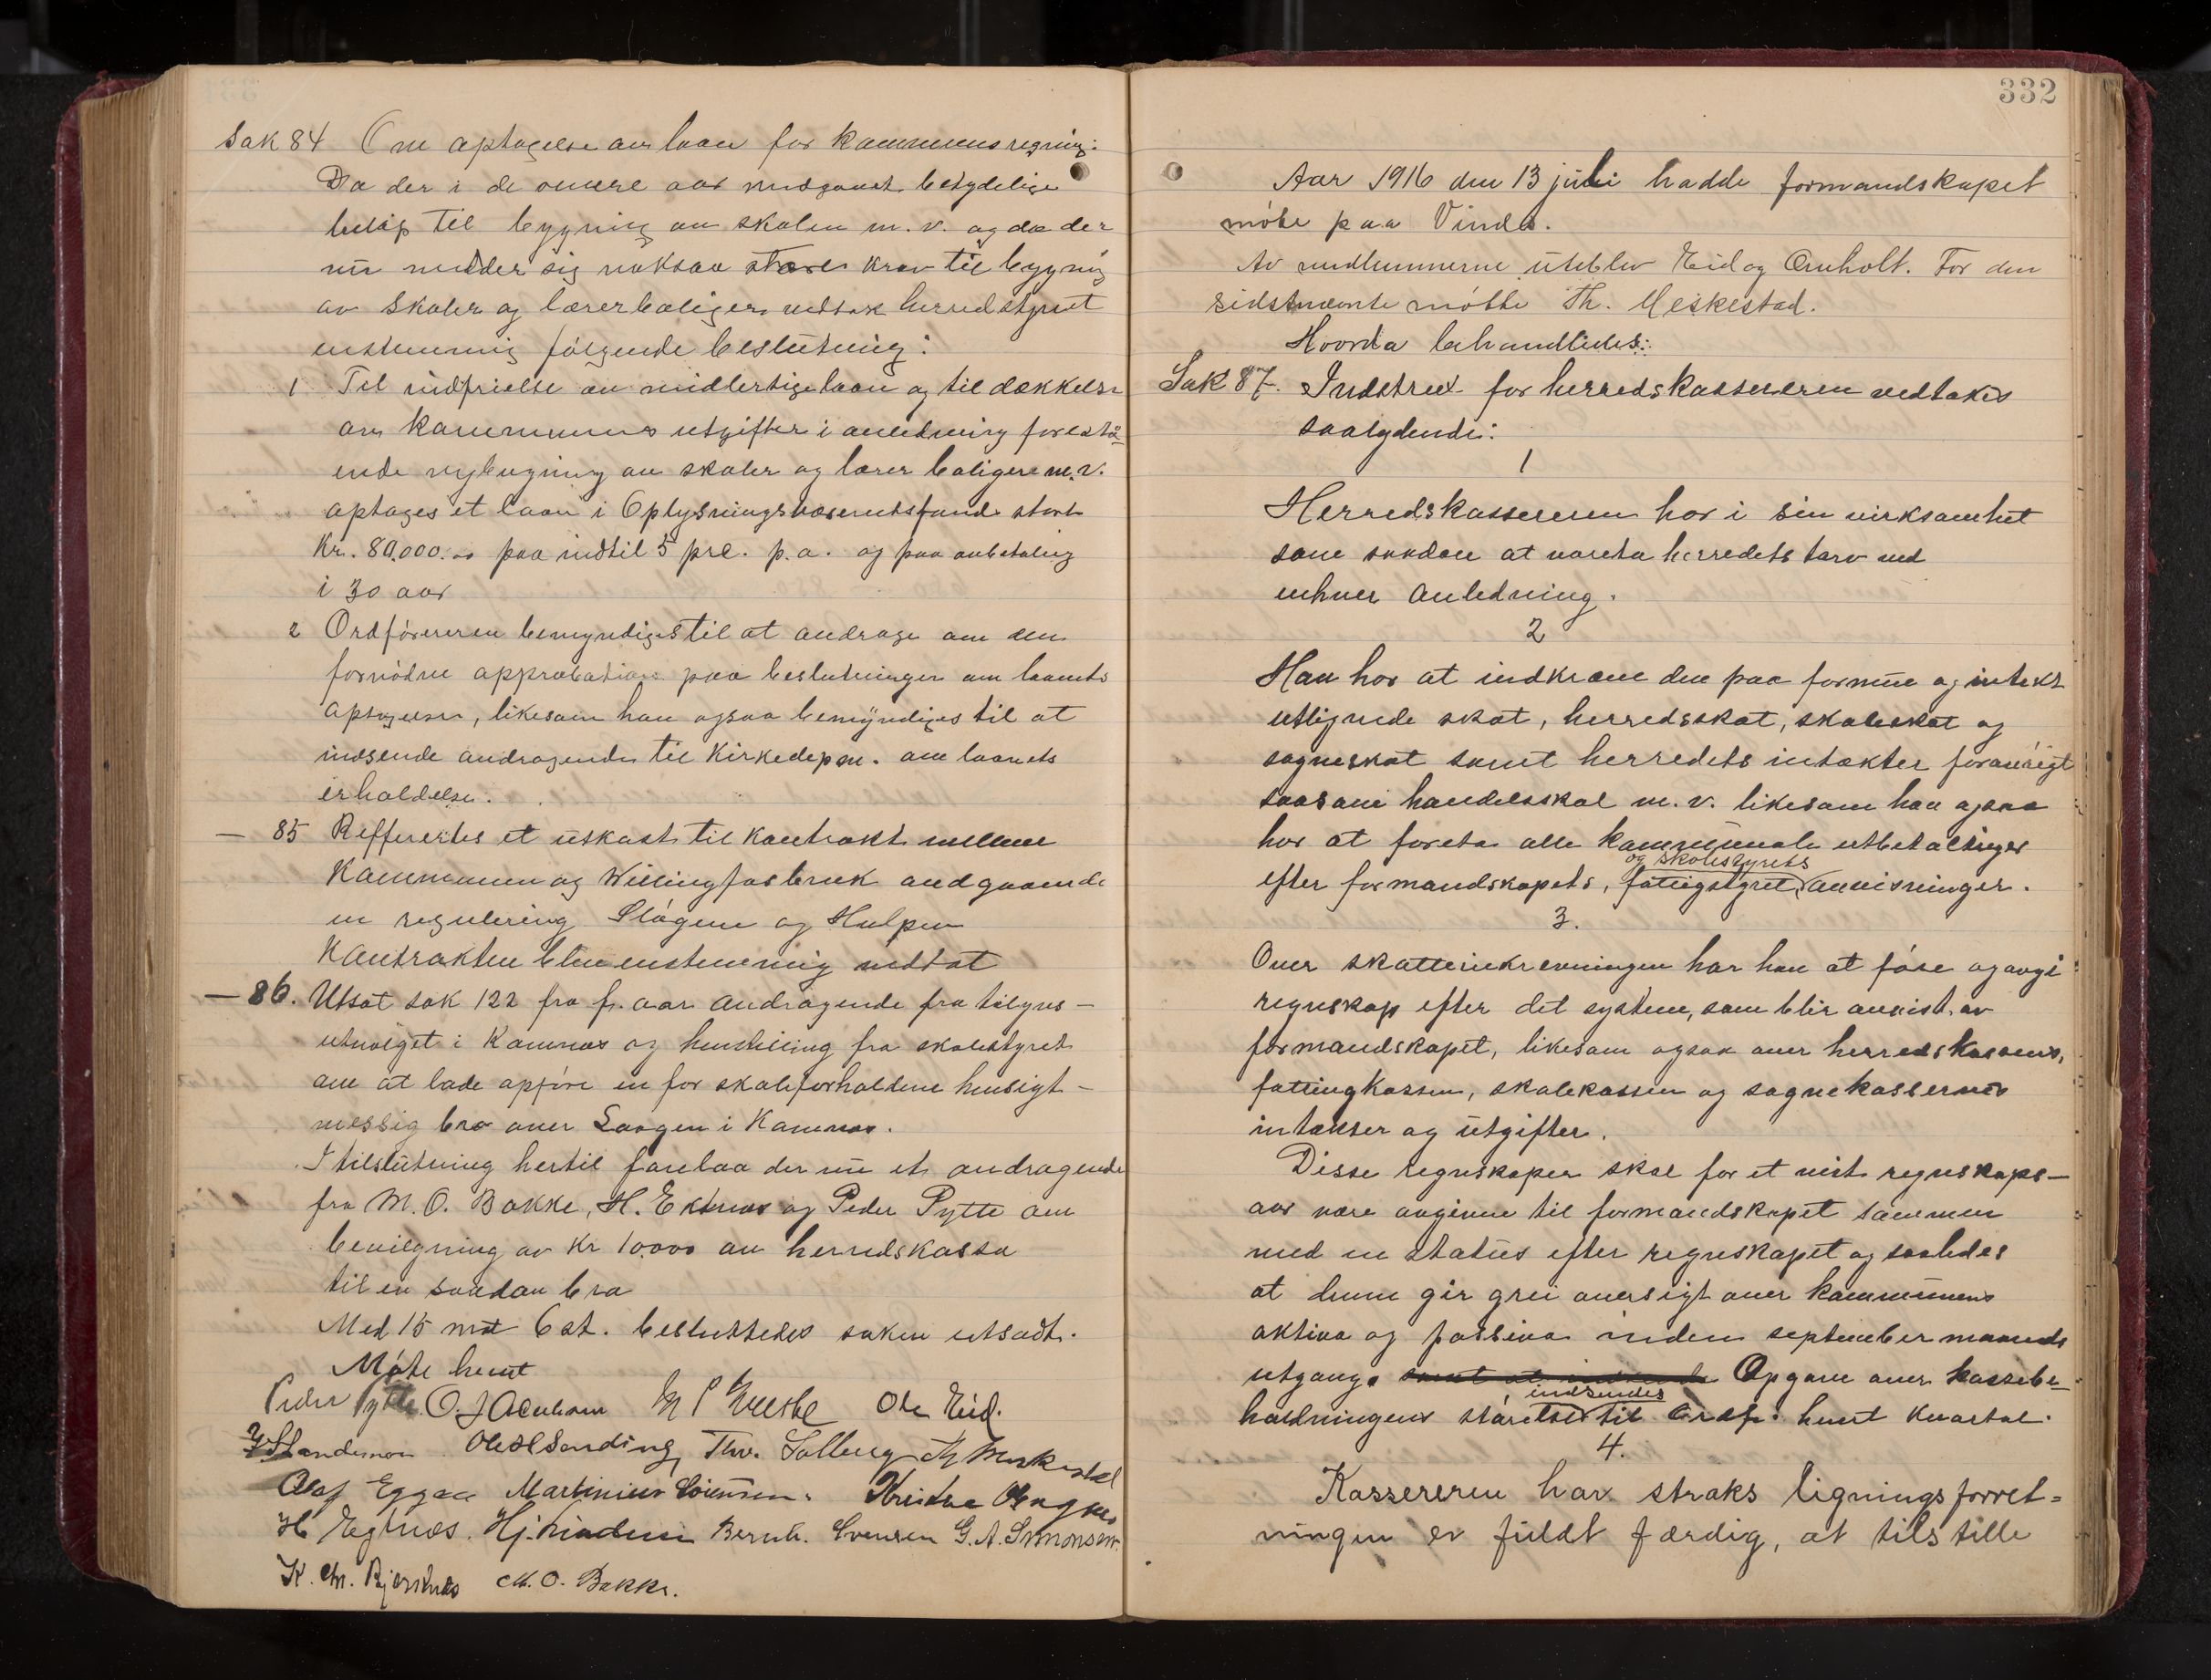 Sak 84 Om optagelse av laan for kommunens regning:
Da der i de senere aar medgaaet betydelige
beløp til bygning av skoler m.v. og da der
nu melder sig noksaa store krav til bygning
av skoler og lærerboliger vedtok herredstyret
enstemmig følgende beslutning:
1 Til indfrielse av midlertige laan og til dækkelse
av kommunens utgifter i anledning forestå-
ende nybygning av skoler og lærerboligere m.v.
optages et laan i Oplysningsvæsenets fond stort
Kr. 80.000.00 paa indtil 5 prc. p.a. og paa avbetaling
i 30 aar
2 Ordføreren bemyndiges til at andrage om den
fornødne approbation paa beslutningen om laanets
optagelse, likesom han ogsaa bemyndiges til at
indsende andragende til Kirkedepm. om laanets
erholdelse.
— 85 Refferertes et utkast til kontrakt mellem
Kommunen og Willingfos bruk angaaende
en regulering Slågene og Hulpen
Kontrakten blev enstemmig vedtat
— 86. Utsat sak 122 fra f. aar andragende fra tilsyns-
utvalget i Komnæs og henstilling fra skolestyret
om at lade opføre en for skoleforholdene hensigt-
messig bro over Laagen i Komnæs.
I tilslutning hertil forelaa der nu et andragende
fra M.O. Bakke, H. Eknæs og Peder Pytte om
bevilgning av Kr 10000 av herredskassa
til en saadan bro
Med 15 mot 6 st. besluttedes saken utsadt.
Møte hevet
Peder Pytte. O. J Ole Eid.
Ole H Sending Thv. Solberg Th Meskestad
Olaf Eggen Martinius Sørensen.
H Egtnæs. Hj. Bernh. Svensen G.A. Simonsen.
K. Chr. Bjerknes M.O. Bakke.
332
Aar 1916 den 13 juli hadde formandskapet
møte paa Vinda.
Av medlemmerne uteblev Eid og Omholt. For den
sidstnævnte møtte Th. Meskestad.
Hvorda behandledes:
Sak 87. Indstrux for herredskassereren vedtakes
saalydende:
1
Herredskassereren har i sin virksomhet
som saadan at vareta herredets tarv ved
enhver anledning.
2
Han har at indkræve den paa formue og intekt
utlignede skat, herredsskat, skoleskat og
sogneskat samt herredets intækter forøvrigt
saasom handelsskat m.v. likesom han ogsaa
har at foreta alle kommunale utbetalinger
og skolestyrets
efter formandskapets, fattigstyret anvisninger.
3.
Over skatteinkrevningen har han at føre og avgi
regnskap efter det system, som blir anvist av
formandskapet, likesom ogsaa over herredskassens,
fattigkassen, skolekassen og sognekassernes
intækter og utgifter.
Disse regnskaper skal for et vist regnskaps-
aar være avgivne til formandskapet sammen
med en status efter regnskapet og saaledes
at denne gir grei oversigt over kommunens
aktiva og passiva inden september maaneds
utgang. samt at indsende Opgave over kassebe-
indsendes
holdningens størelse til ordf. hvert kvartal.
4.
Kassereren har straks ligningsforret-
ningen er fuldt færdig, at tilstille